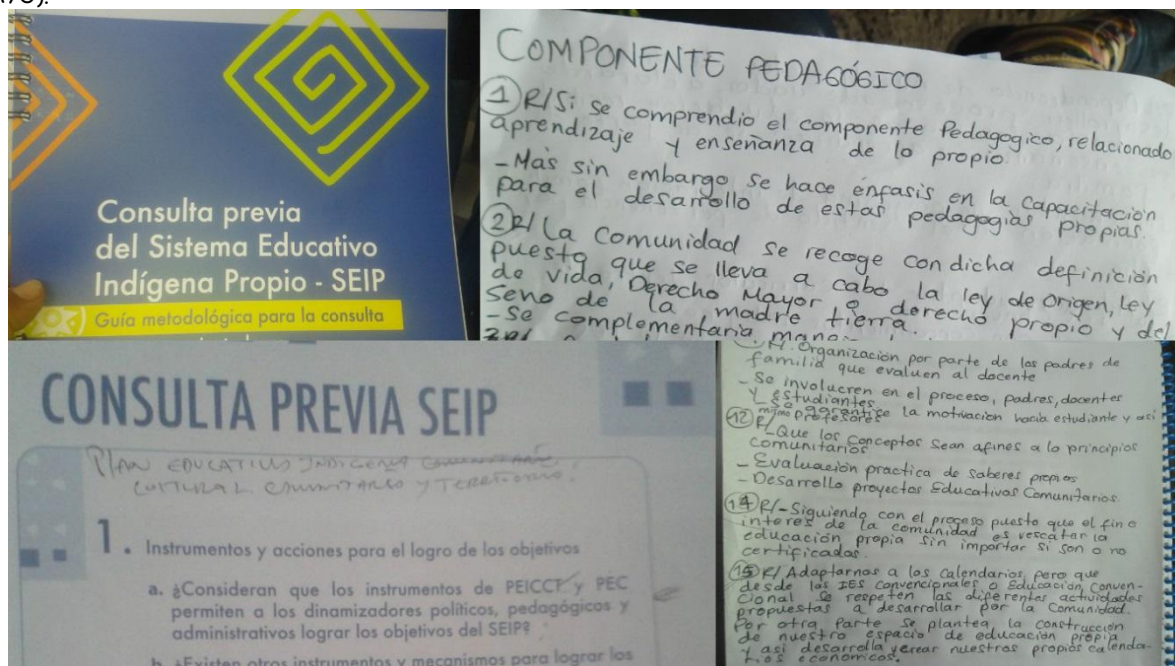 Consulta previa
del Sistema Educativo
Indígena Propio - SEIP
Guía metodológica para la consulta
COMPONENTE PEDAGÓGICO
1) R/Si se comprendio el componente Pedagogico, relacionado
aprendizaje y enseñanza de lo propio.
- Más sin embargo se hace énfasis en la capacitación
para el desarrollo de estas pedagogías propias.
2) R/ La comunidad se recoge con dicha definición
puesto que se lleva a cabo la ley de origen, Ley
de vida, Derecho Mayor o derecho propio y del
Seno de la madre tierra.
- Se complementaria
CONSULTA PREVIA SEIP
PLAN EDUCATIVO INDIGENA
CULTURAL COMUNITARIO Y TERRITORIO.
1. Instrumentos y acciones para el logro de los objetivos
a. ¿Consideran que los instrumentos de PEICCT y PEC
permiten a los dinamizadores políticos, pedagógicos y
administrativos lograr los objetivos del SEIP?
b. ¿Existen otros instrumentos y mecanismos para lograr los
R/. Organización por parte de los padres de
familia que evaluen al docente
- Se involucren en el proceso, padres, docentes
y estudiantes
- Se garantice la motivación hacia estudiante y asi
mismo profesores
12) R/ Que los conceptos sean afines a lo principios
comunitarios
- Evaluación practica de saberes propios
- Desarrollo proyectos Educativos Comunitarios.
14) R/- Siguiendo con el proceso puesto que el fin e
interes de la comunidad es rescatar la
educación propia sin importar si son o no
certificados.
15) R/ Adaptarnos a los calendarios, pero que
desde las IES convencionales o Educación Conven-
cional se respeten las diferentes actividades
propuestas a desarrollar por la comunidad.
Por otra parte se plantea, la construcción
de nuestro espacio de educación propia
y asi desarrolla y crear nuestros propios calenda-
rios economicos.